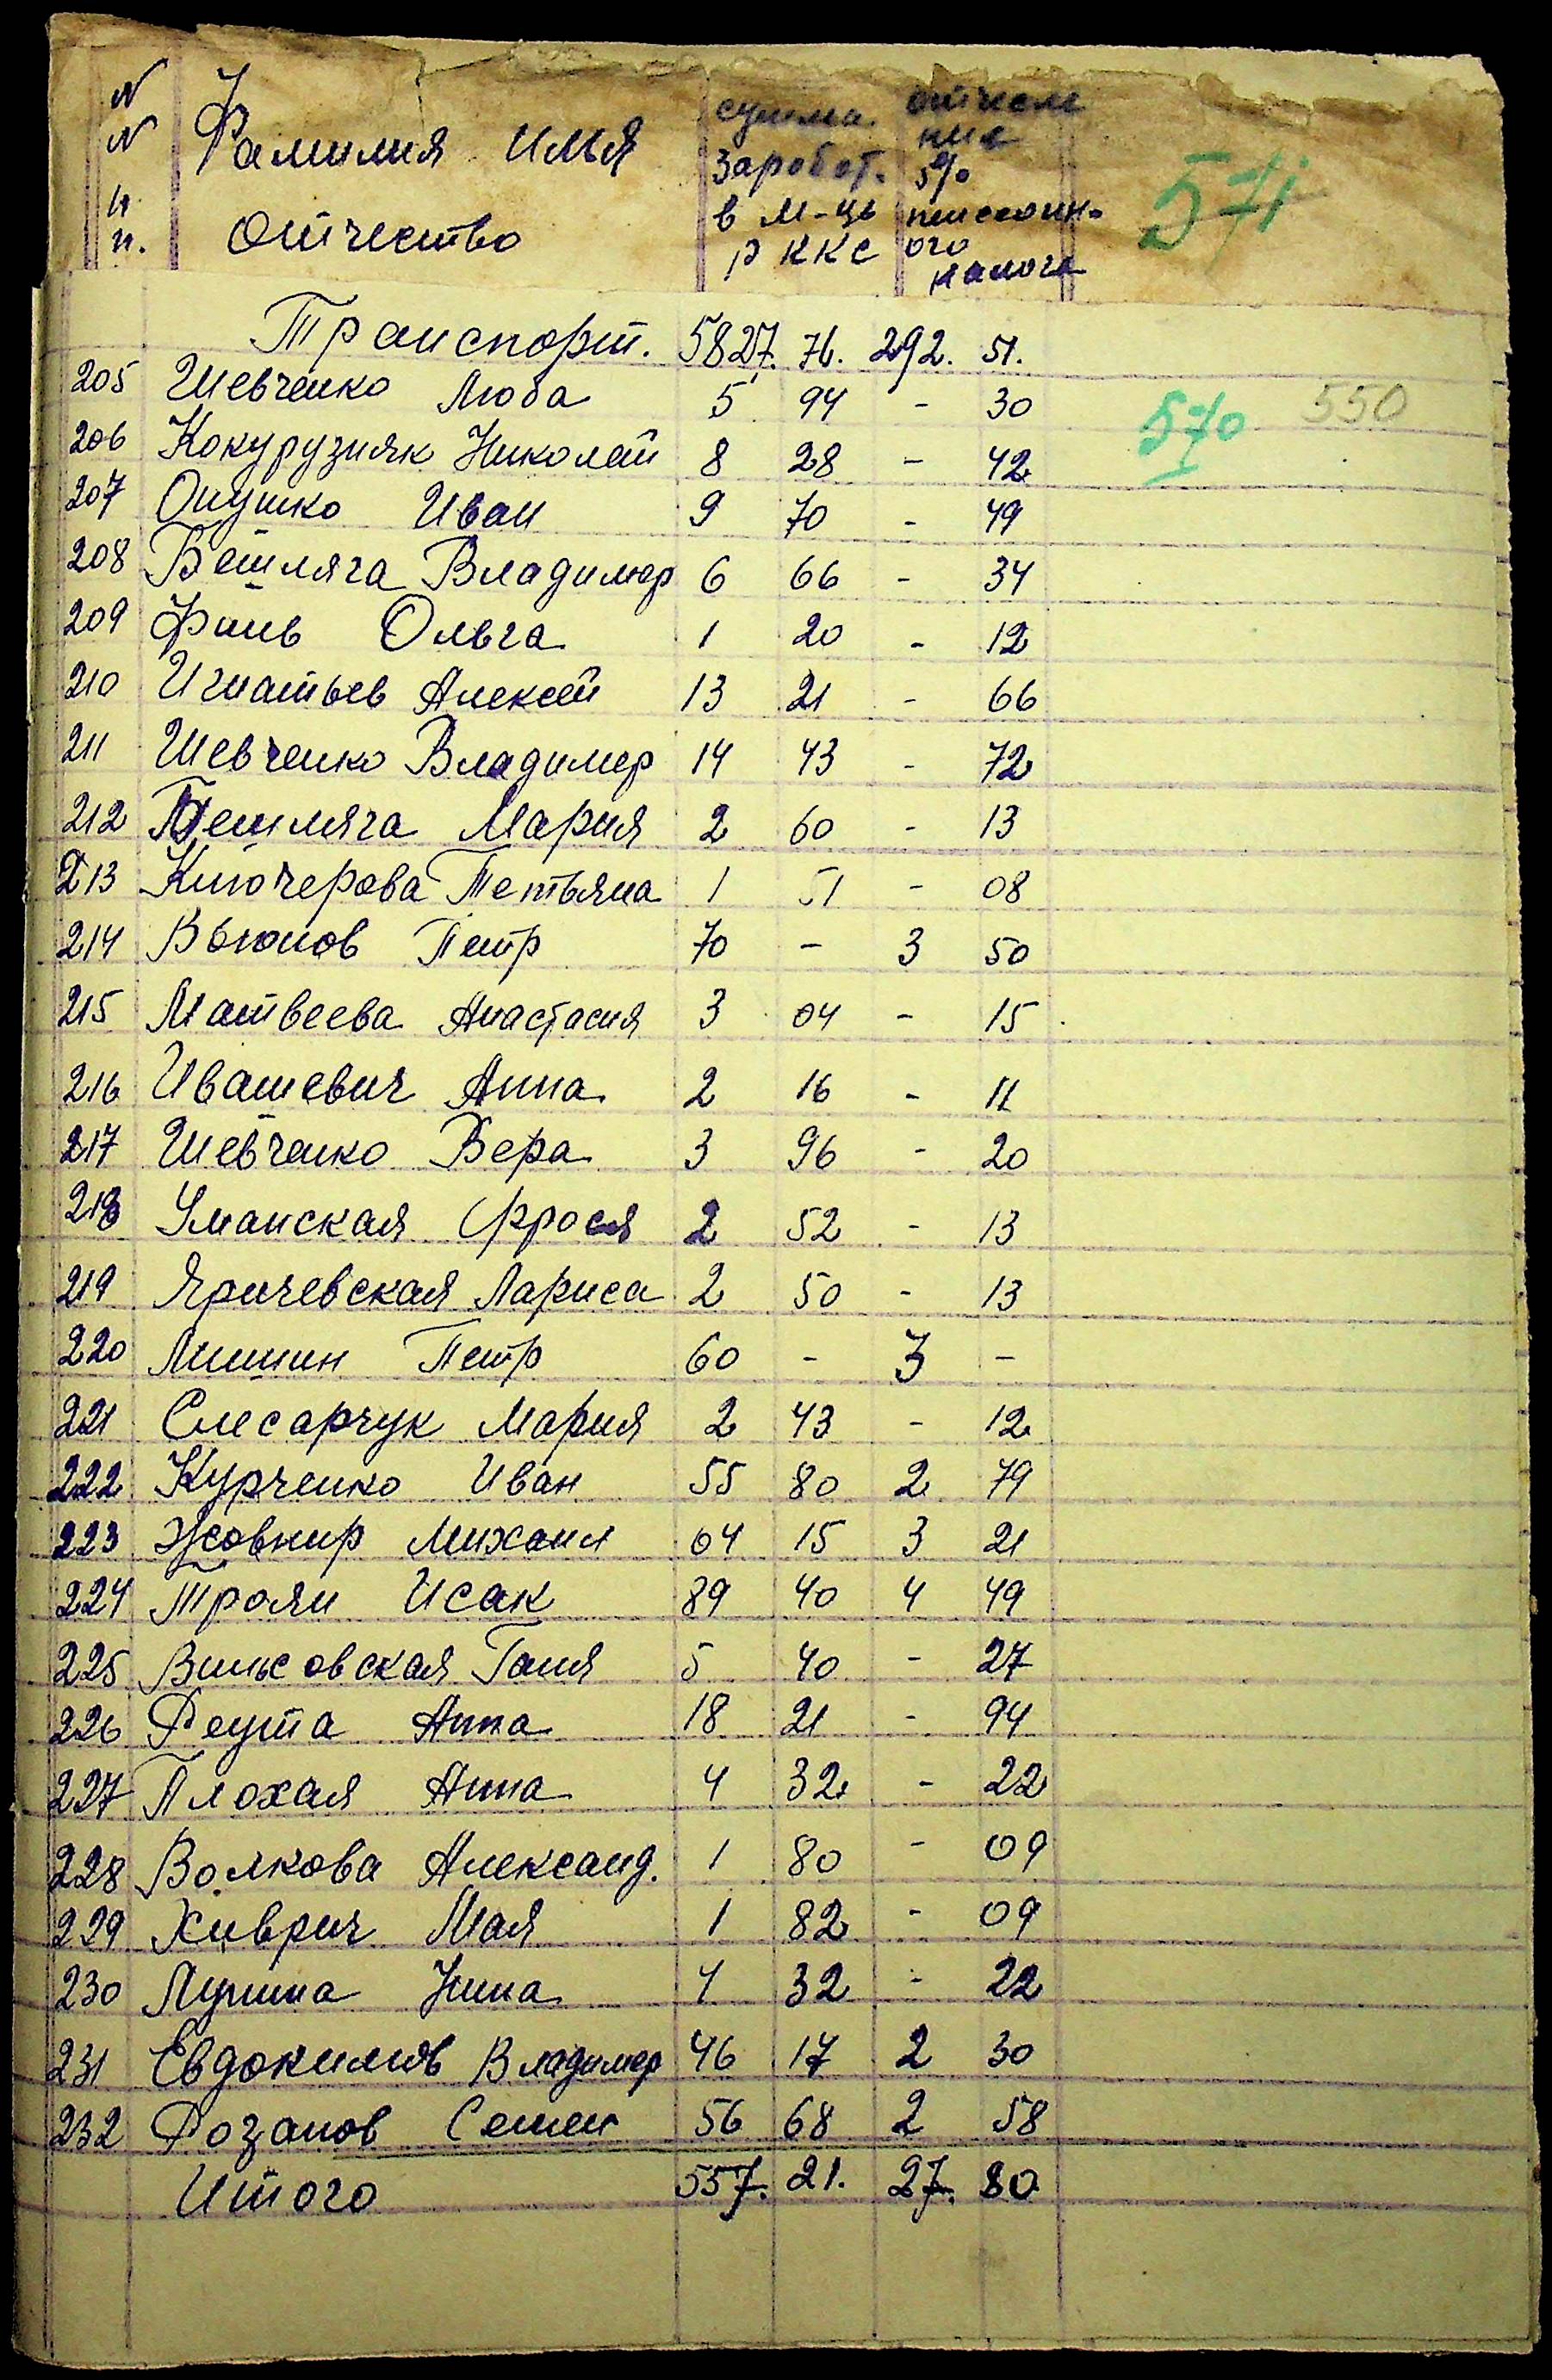 N N п. п. Фамилия Имья Отчество сумма заробот. в м-ць р ккс отчисления 5% пенсеонного налога
571
Транспорт. 5827. 76. 292. 51.
205 Шевченко Люба 5 94 - 30
570 550
206 Кокурузняк Николай 8 28 - 42
207 Онушко Иван 9 70 - 49
208 Петляга Владимер 6 66 - 34
209 Финь Ольга 1 20 - 12
210 Игнатьев Алексей 13 21 - 66
211 Шевченко Владимер 14 43 - 72
212 Петляга Мария 2 60 - 13
213 Ключерова Тетьяна 1 51 - 08
214 Вьюнов Петр 70 - 3 50
215 Матвеева Анастасия 3 04 - 15
216 Ивашевич Анна 2 16 - 11
217 Шевченко Вера 3 96 - 20
218 Уманская Фрося 2 52 - 13
219 Яричевская Лариса 2 50 - 13
220 Лишин Петр 60 - 3 -
221 Слесарчук Мария 2 43 - 12
222 Курченко Иван 55 80 2 79
223 Жовнир Михаил 64 15 3 21
224 Троян Исак 89 40 4 49
225 Вильсовская Ганя 5 40 - 27
226 Реута Анна 18 21 - 94
227 Плохая Анна 4 32 - 22
228 Волкова Александ. 1 80 - 09
229 Хиврич Мая 1 82 - 09
230 Лунина Нина 4 32 - 22
231 Евдокимов Владимер 46 17 2 30
232 Розанов Семен 56 68 2 58
Итого 557. 21. 27. 80